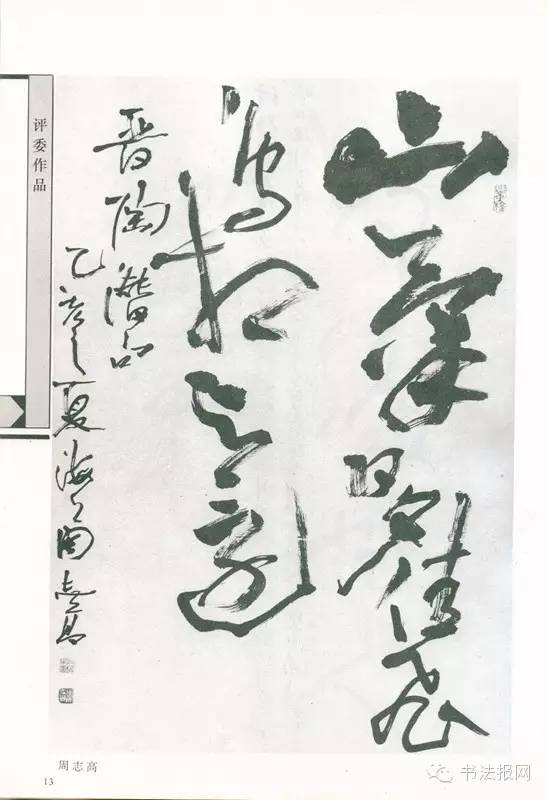 评委作品
山氣日夕佳飛
鳥相与還
晋陶潜句
乙亥之夏海上周志高
周志高
13
书法报网